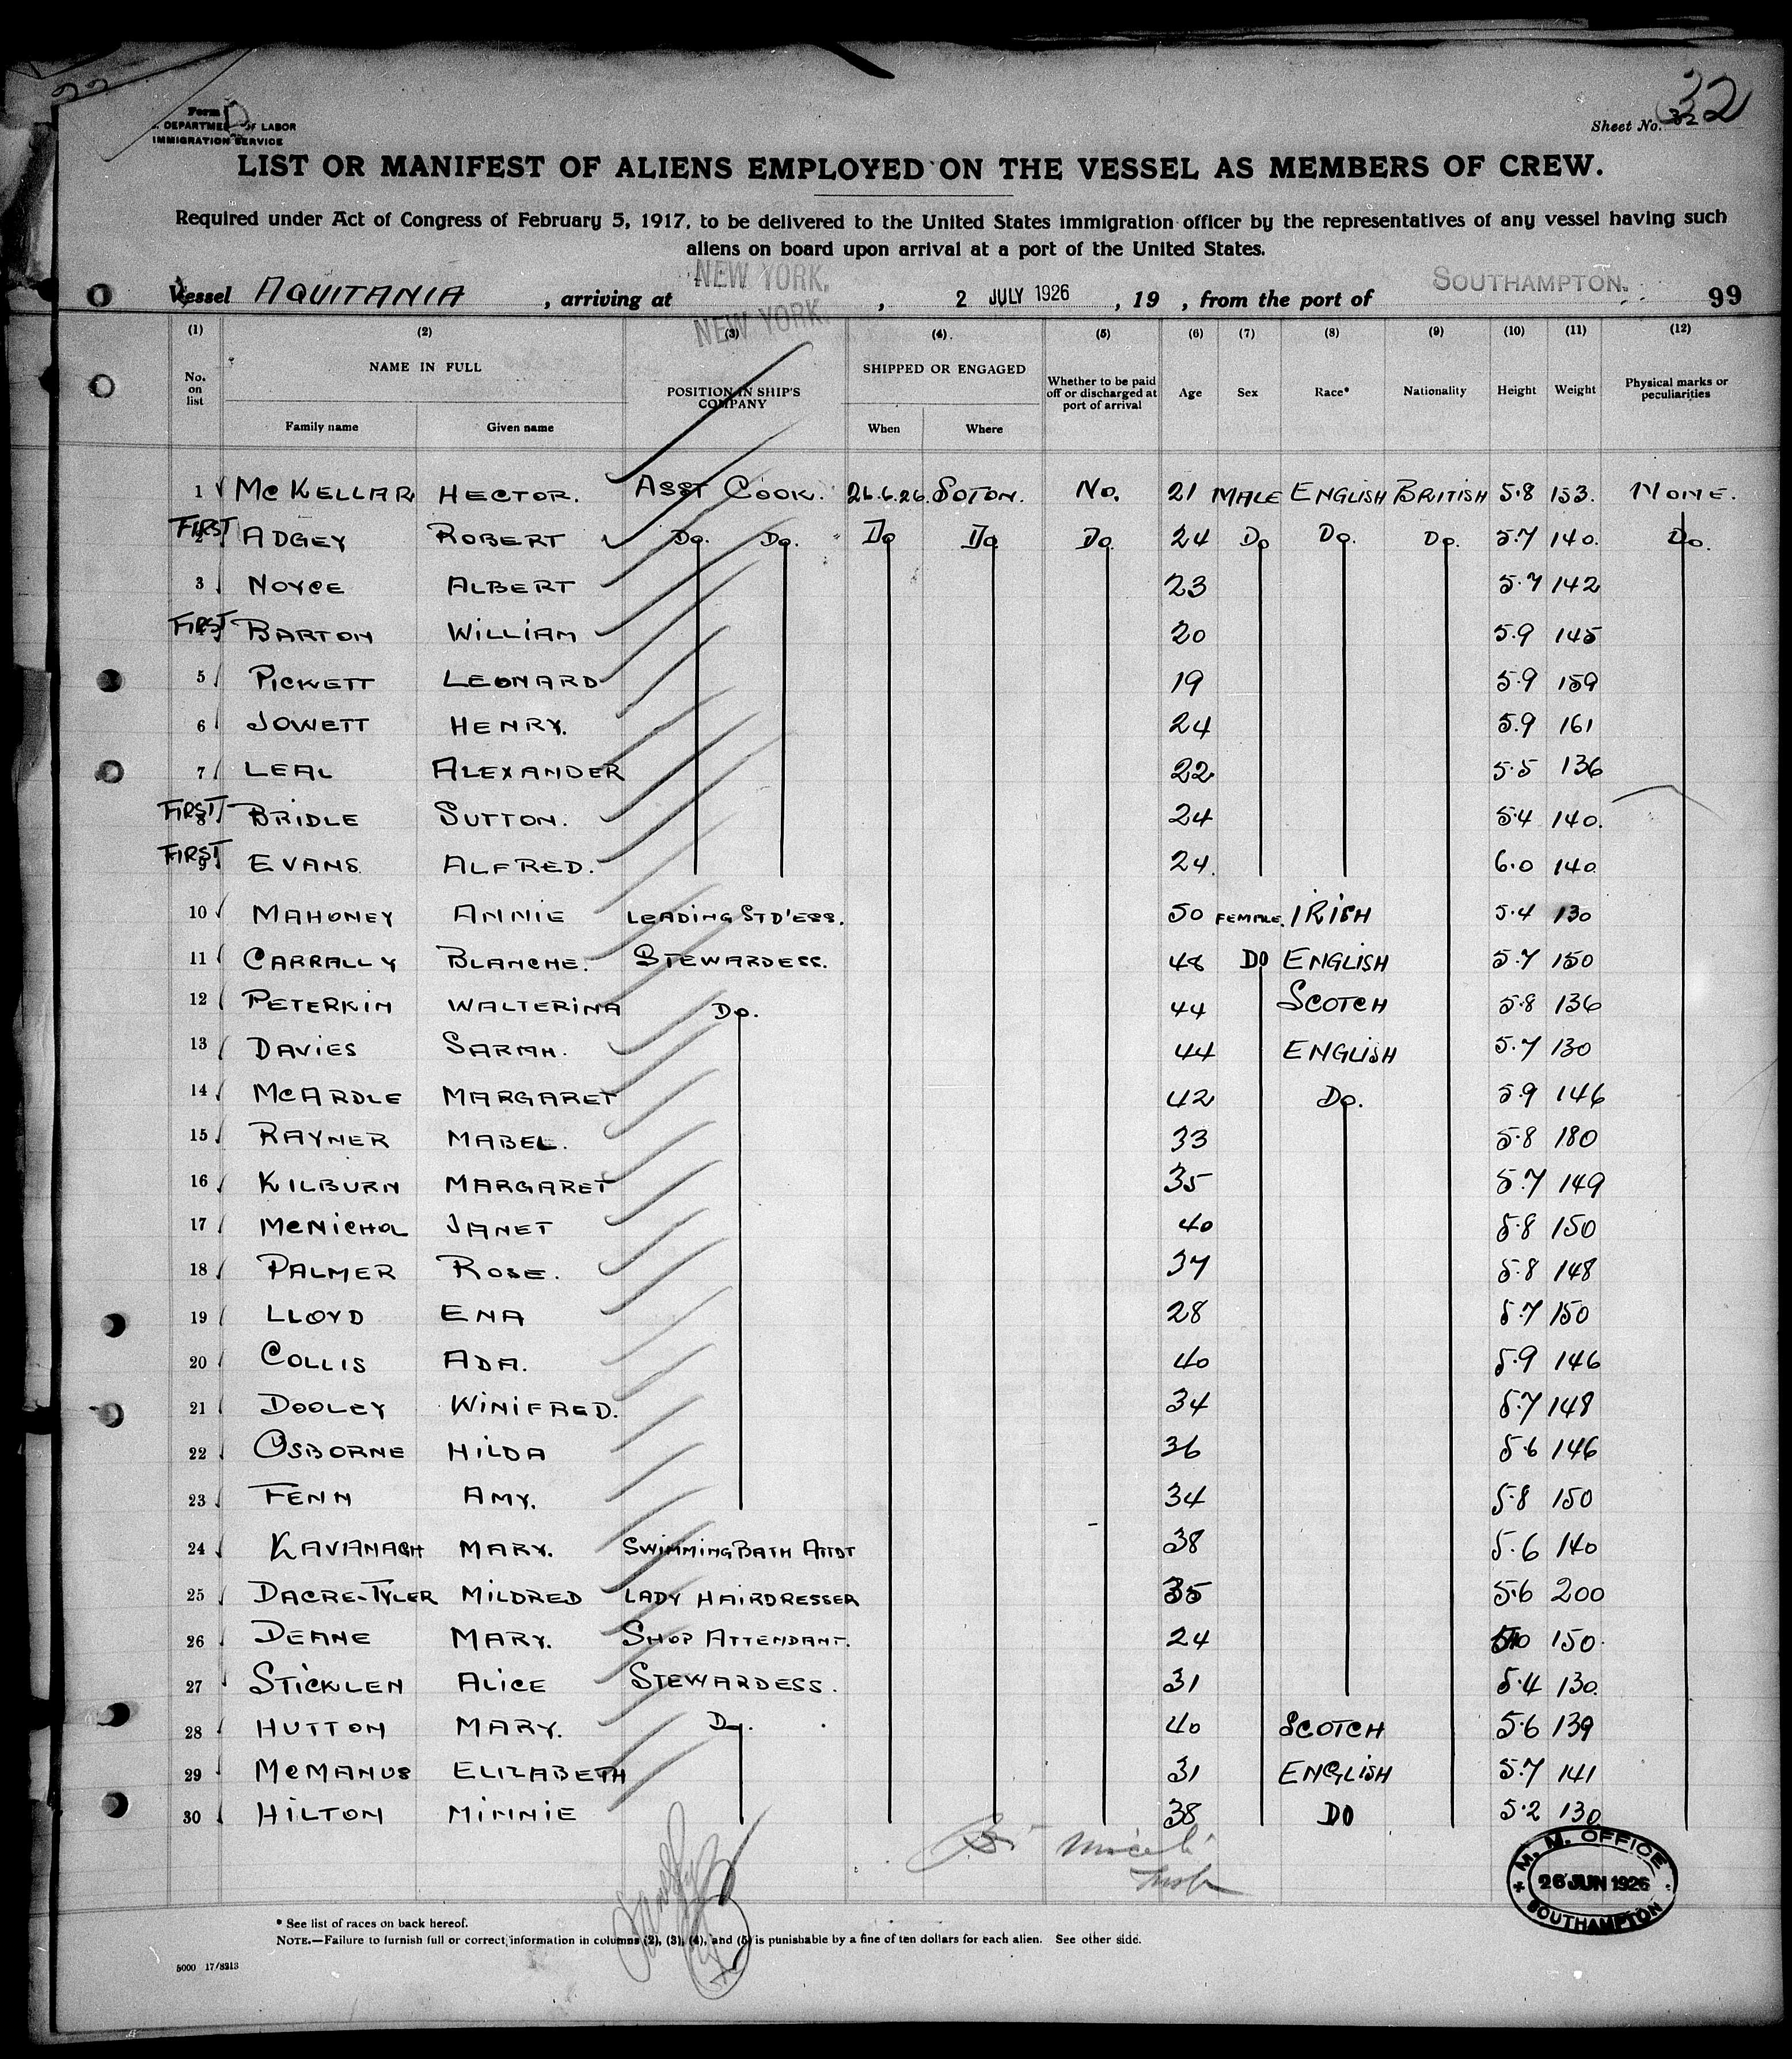 22
32
Form
DEPARTMENT OF LABOR
IMMIGRATION SERVICE
Sheet No. 32
LIST OR MANIFEST OF ALIENS EMPLOYED ON THE VESSEL AS MEMBERS OF CREW.
Required under Act of Congress of February 5, 1917, to be delivered to the United States immigration officer by the representatives of any vessel having such
aliens on board upon arrival at a port of the United States.
NEW YORK.
SOUTHAMPTON.
Vessel AQUITANIA , arriving at , 2 JULY 1926 , 19 , from the port of 99
NEW YORK.
(1) (2) (3) (4) (5) (6) (7) (8) (9) (10) (11) (12)
No. on list NAME IN FULL Family name Given name POSITION IN SHIP'S COMPANY SHIPPED OR ENGAGED When Where Whether to be paid off or discharged at port of arrival Age Sex Race* Nationality Height Weight Physical marks or peculiarities
1 McKELLAR HECTOR. ASST COOK. 26.6.26. SOTON. NO. 21 MALE ENGLISH BRITISH 5.8 153. NONE.
FIRST 2 ADGEY ROBERT Do. Do. Do Do Do 24 Do Do. Do. 5.7 140. Do.
3 NOYCE ALBERT 23 5.7 142
FIRST 4 BARTON WILLIAM 20 5.9 145
5 PICKETT LEONARD 19 5.9 159
6 JOWETT HENRY. 24 5.9 161
7 LEAL ALEXANDER 22 5.5 136
FIRST 8 BRIDLE SUTTON. 24 5.4 140.
FIRST 9 EVANS ALFRED. 24. 6.0 140.
10 MAHONEY ANNIE LEADING STD'ESS. 50 FEMALE. IRISH 5.4 130
11 CARRALLY BLANCHE. STEWARDESS. 48 DO ENGLISH 5.7 150
12 PETERKIN WALTERINA Do. 44 SCOTCH 5.8 136
13 DAVIES SARAH. 44 ENGLISH 5.7 130
14 McARDLE MARGARET 42 Do. 5.9 146
15 RAYNER MABEL. 33 5.8 180
16 KILBURN MARGARET 35 5.7 149
17 McNICHOL JANET 40 5.8 150
18 PALMER ROSE. 37 5.8 148
19 LLOYD ENA 28 5.7 150
20 COLLIS ADA. 40 5.9 146
21 DOOLEY WINIFRED. 34 5.7 148
22 OSBORNE HILDA 36 5.6 146
23 FENN AMY. 34 5.8 150
24 KAVANAGH MARY. SWIMMING BATH ATTDT 38 5.6 140
25 DACRE-TYLER MILDRED LADY HAIRDRESSER 35 5.6 200
26 DEANE MARY. SHOP ATTENDANT. 24 5.10 150.
27 STICKLEN ALICE STEWARDESS. 31 5.4 130.
28 HUTTON MARY. Do. 40 SCOTCH 5.6 139
29 McMANUS ELIZABETH 31 ENGLISH 5.7 141
30 HILTON MINNIE 38 DO 5.2 130
M. M. OFFICE
26 JUN 1926
SOUTHAMPTON
* See list of races on back hereof.
NOTE.—Failure to furnish full or correct information in columns (2), (3), (4), and (5) is punishable by a fine of ten dollars for each alien. See other side.
5000 17/8213